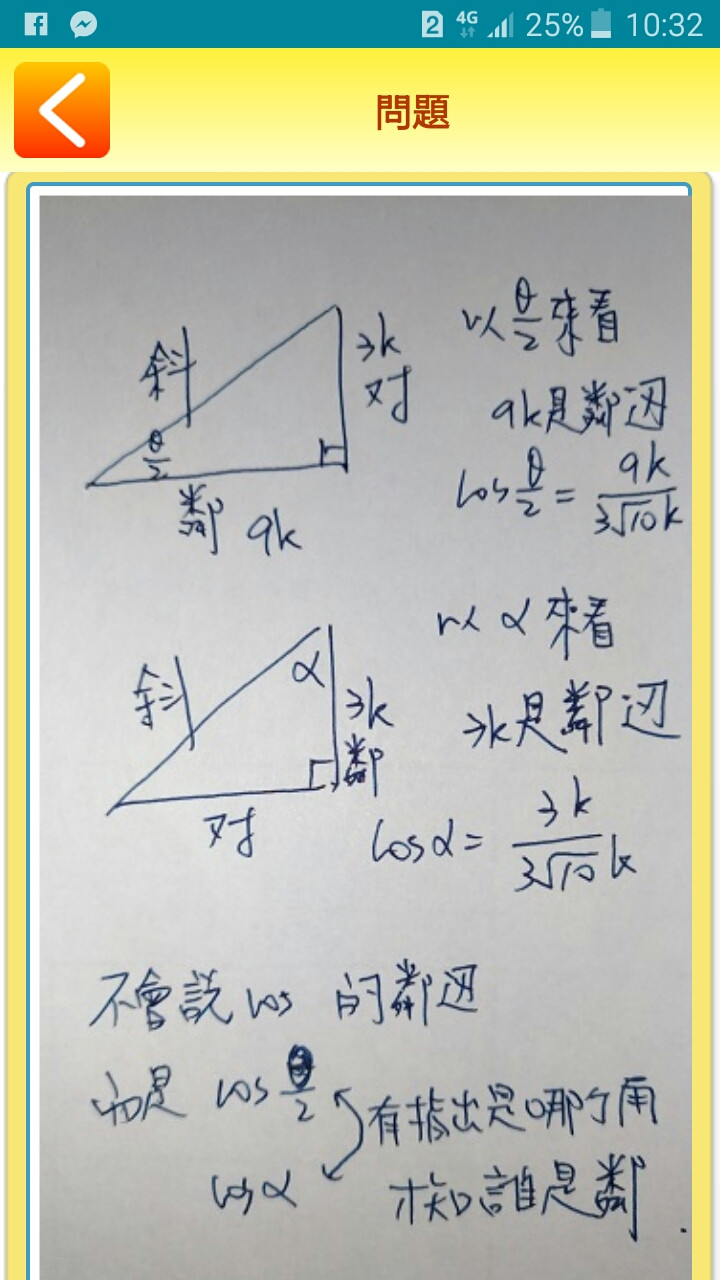 2 4G 25% 10:32
問題
斜
3k
对
θ/2
鄰 9k
以 θ/2 來看
9k是鄰边
cos θ/2 = 9k/3√10k
斜
α
3k
鄰
对
以 α 來看
3k是鄰边
cosα = 3k/3√10k
不會說 cos 的鄰边
而是 cos θ/2
有指出是哪个角
cosα
才知誰是鄰